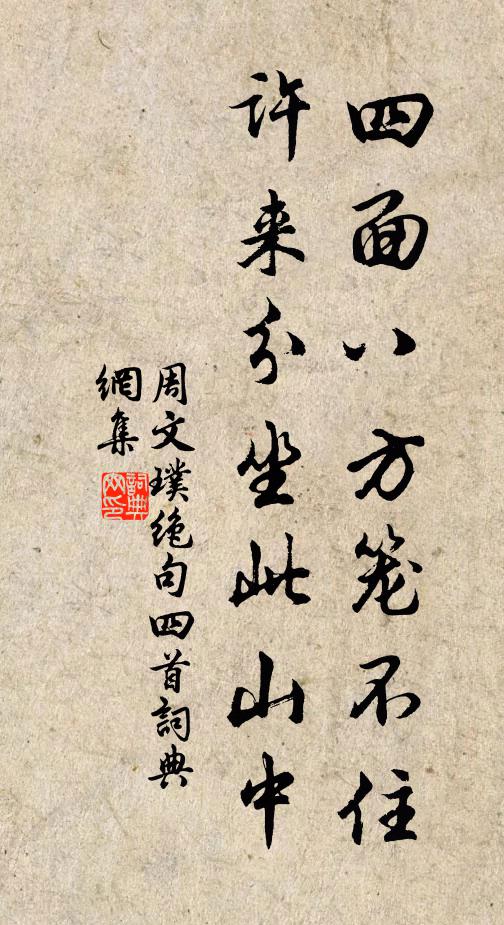 四面八方笼不住
许来分坐此山中
周文璞绝句四首词典
網集
詞典網印